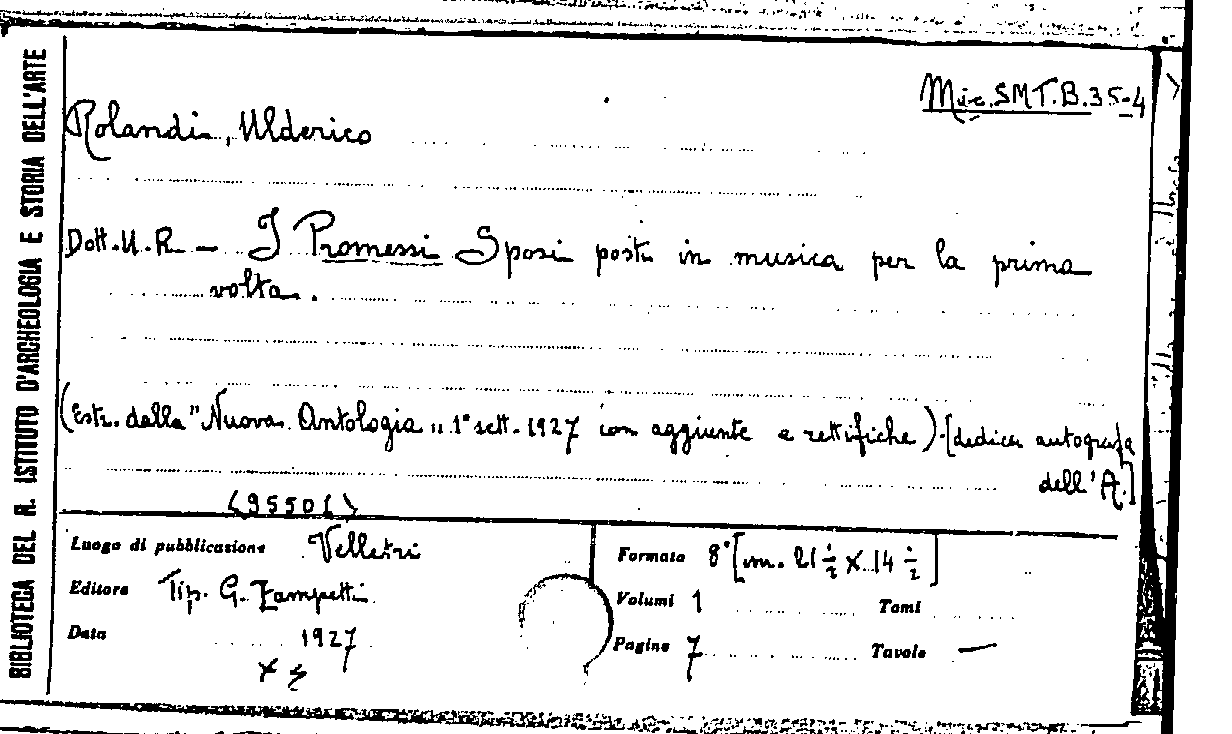 BIBLIOTECA DEL R. ISTITUTO D'ARCHEOLOGIA E STORIA DELL'ARTE
Misc. SMT.B.35-4
Rolandi, Ulderico
Dott. U. R. — I Promessi Sposi posti in musica per la prima
volta.
(Estr. dalla "Nuova Antologia" 1° sett. 1927 con aggiunte e rettifiche). [dedica autografa
dell'A.]
Luogo di pubblicazione Velletri
Editore Tip. G. Zampetti
Data 1927
Formato 8° [cm. 21 ½ x 14 ½]
Volumi 1 Tomi
Pagine 7 Tavole —